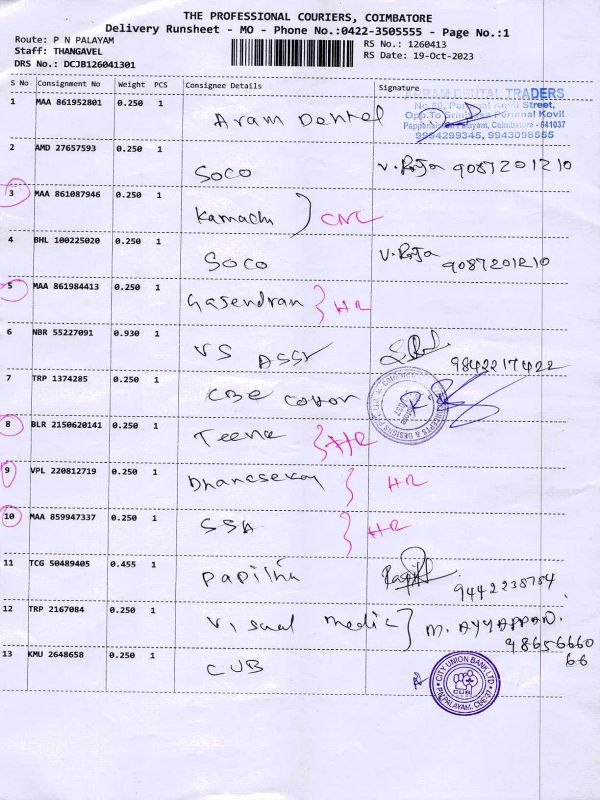 THE PROFESSIONAL COURIERS, COIMBATORE
Delivery Runsheet - MO - Phone No.:0422-3505555 - Page No.:1
Route: P N PALAYAM
Staff: THANGAVEL
DRS No.: DCJB126041301
RS No.: 1260413
RS Date: 19-Oct-2023
S No Consignment No Weight PCS Consignee Details Signature
1 MAA 861952801 0.250 1 Aram Dental
DENTAL TRADERS
No.50, Perumal Kovil Street,
Opp.To Srinivasa Perumal Kovil
Pappanaicken Palayam, Coimbatore - 641037
9994299345, 9943098555
2 AMD 27657593 0.250 1 SOCO V. Roja 9087201210
3 MAA 861087946 0.250 1 Kamachi CNL
4 BHL 100225020 0.250 1 SOCO V. Roja 9087201210
5 MAA 861984413 0.250 1 Gasendran HR
6 NBR 55227091 0.930 1 VS ASSY 9842217422
7 TRP 1374285 0.250 1 CBE cotton
CONCEPTS & DESIGNS
8 BLR 2150620141 0.250 1 Teena HR
9 VPL 220812719 0.250 1 Dhanasekay HR
10 MAA 859947337 0.250 1 SSA HR
11 TCG 50489405 0.455 1 Papilha 9442238784
12 TRP 2167084 0.250 1 Visual Media M. AYYAPPAN.
98656660
66
13 KMU 2648658 0.250 1 CUB
CITY UNION BANK LTD
CUB
P.N.PALAYAM, CBE-37